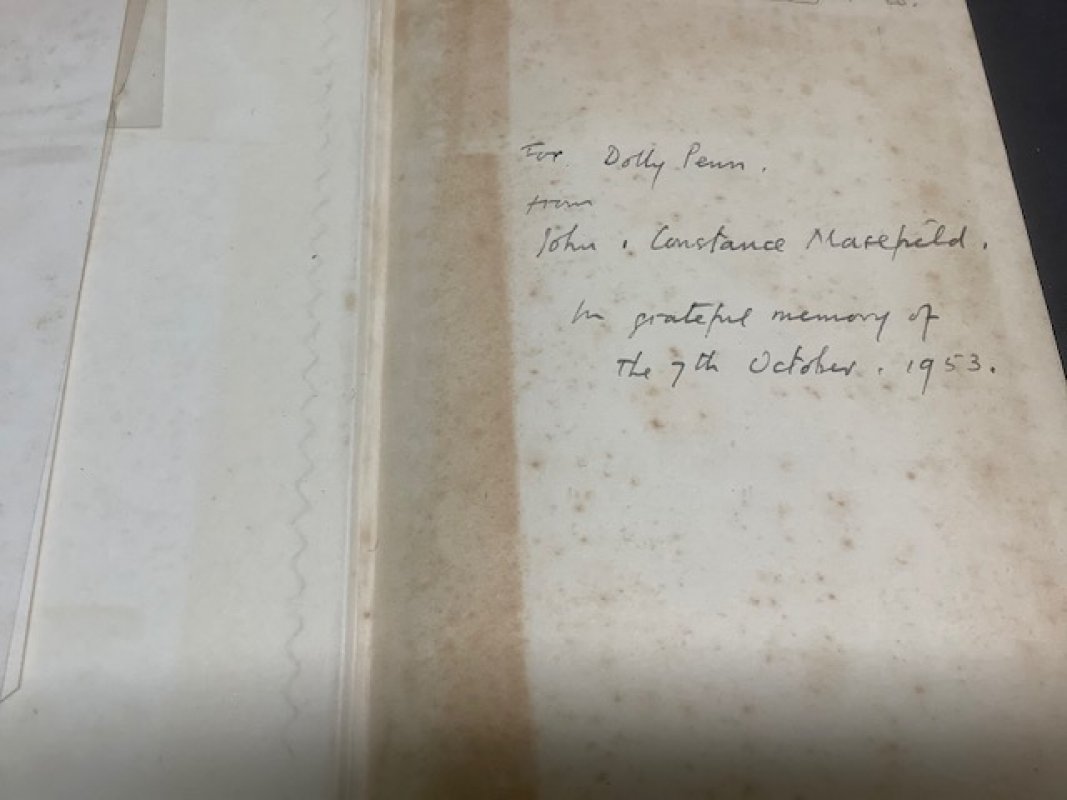 For Dolly Penn.
from
John . Constance Masefield.
In grateful memory of
the 7th October . 1953.